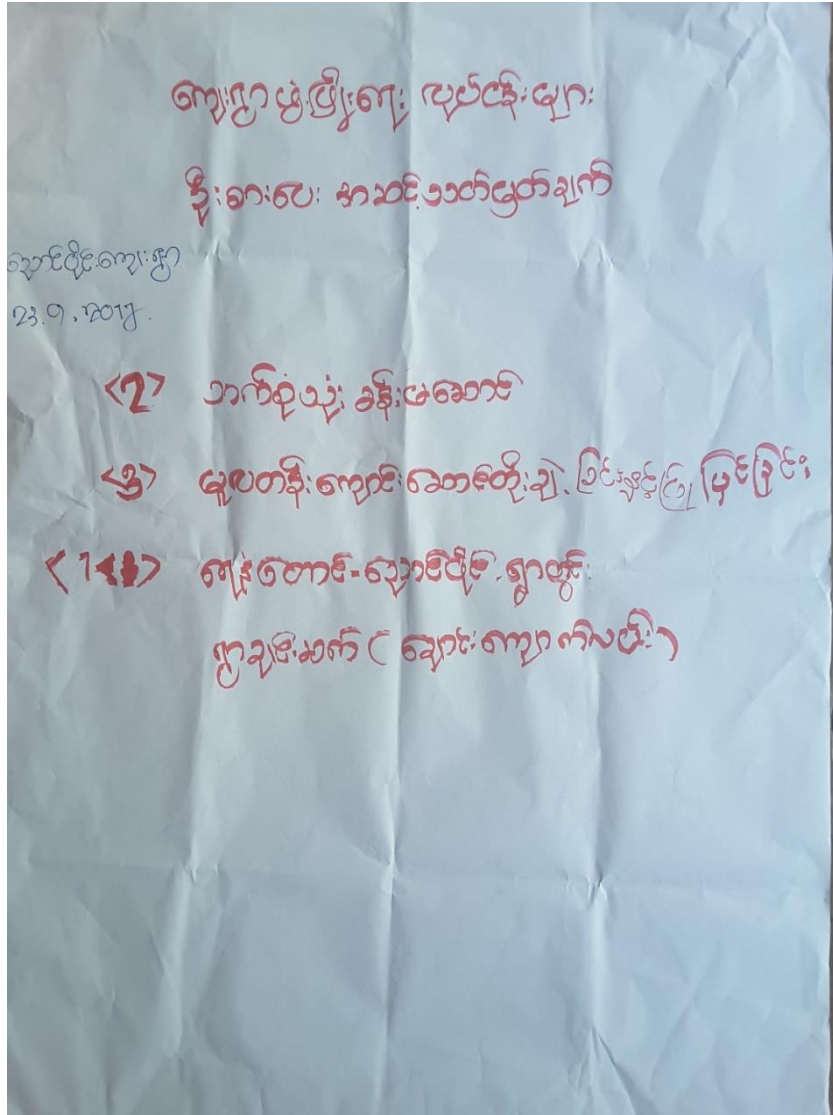 ကျေးရွာ ဖွံ့ဖြိုးရေး လုပ်ငန်းများ
ဦးစားပေး အဆင့်သတ်မှတ်ချက်
ညောင်ပိုင်ကျေးရွာ
23.9.2018.
<2> ဘက်စုံသုံး ခန်းမဆောင်
<3> မူလတန်းကျောင်းဆောင်တိုးချဲ့ ခြင်းနှင့် ပြု ပြင်ခြင်း
<1> တောင်-ညောင်ပိုင် ရွာတွင်း
ရွာချင်းဆက် ( ချောင်းကျောက်လမ်း )